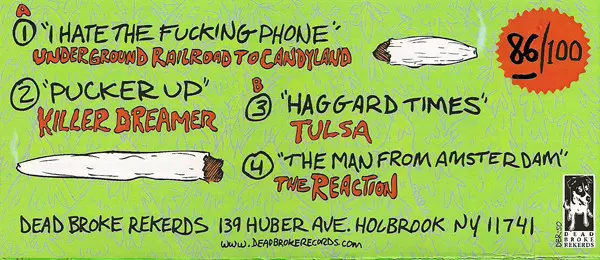 A
1 "I HATE THE FUCKING PHONE"
UNDERGROUND RAILROAD TO CANDYLAND
86/100
2 "PUCKER UP"
KILLER DREAMER
B
3 "HAGGARD TIMES"
TULSA
4 "THE MAN FROM AMSTERDAM"
THE REACTION
DEAD BROKE REKERDS 139 HUBER AVE. HOLBROOK NY 11741
WWW.DEADBROKERECORDS.COM
DBR-20
DEAD
BROKE
REKERDS